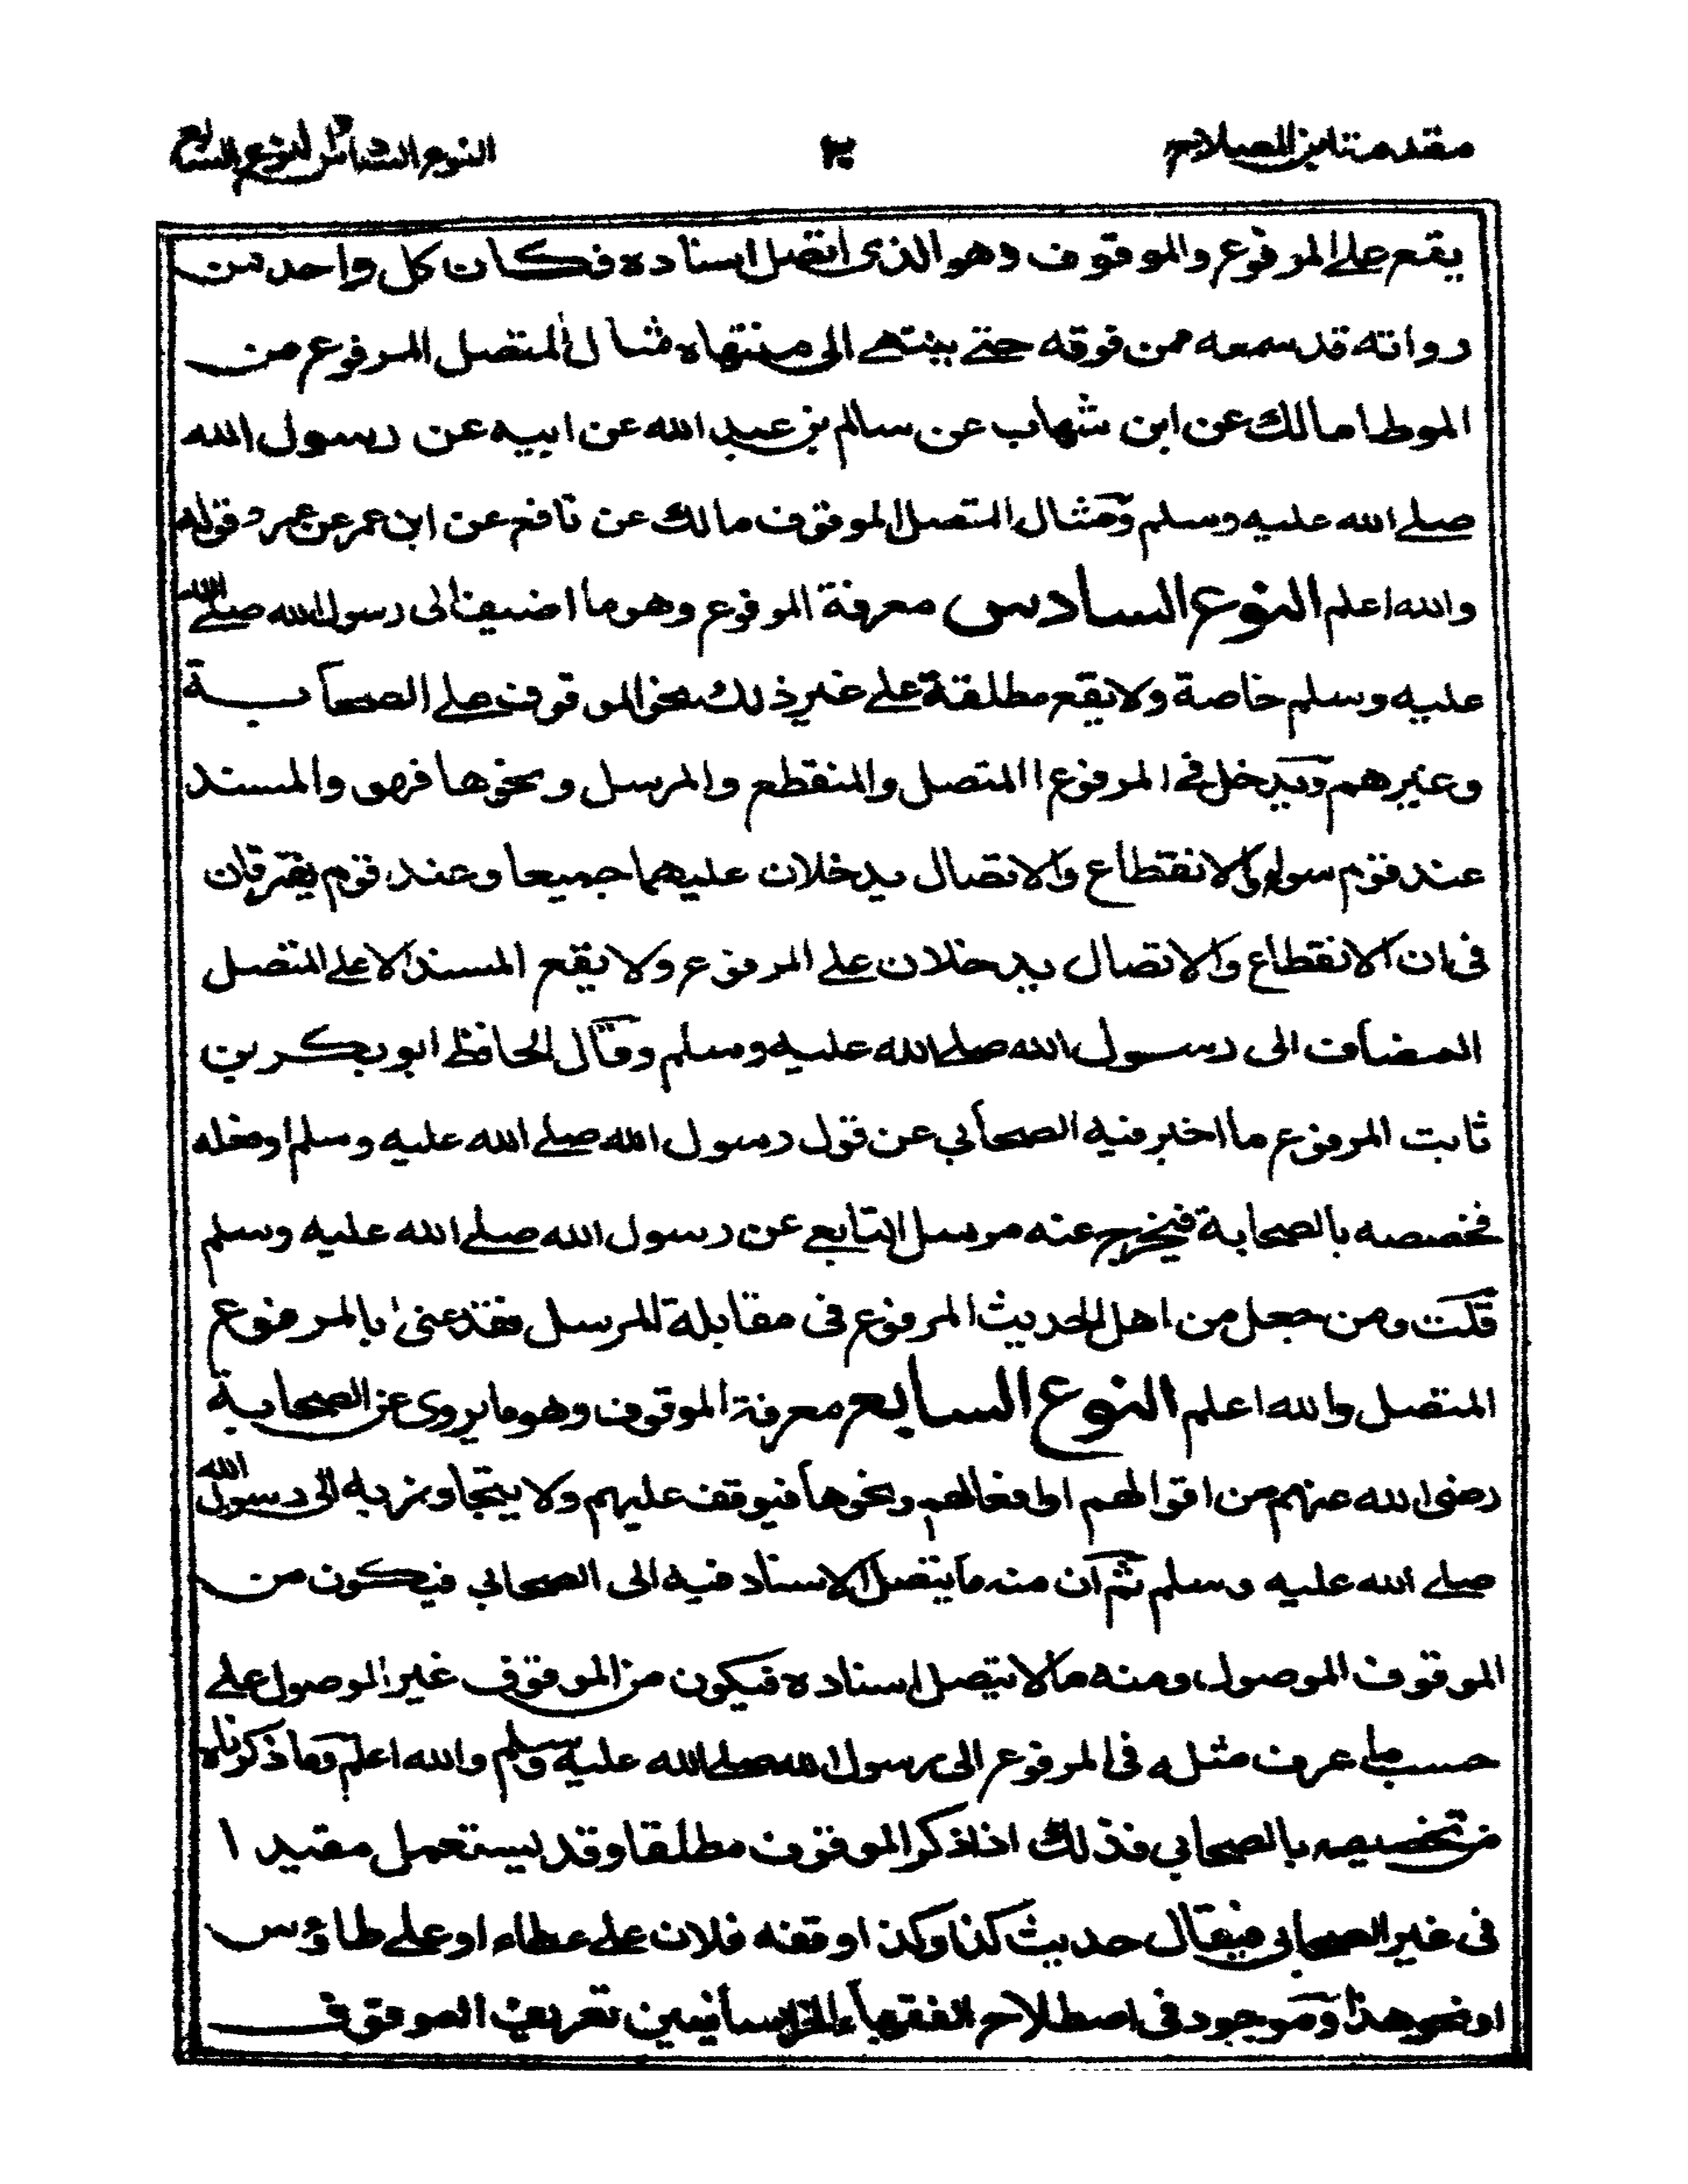 مقدمة ابن الصلاح
النوع السادس النوع السابع
يقع على المرفوع والموقوف وهو الذى اتصل اسناده فكان كل واحد من
رواته قد سمعه ممن فوقه حتى ينتهے الى منتهاه مثال المتصل المرفوع من
الموطا مالك عن ابن شهاب عن سالم بن عبد الله عن ابيه عن رسول الله
صلے الله عليه وسلم ومثال المتصل الموقوف مالك عن نافع عن ابن عمر عن عمر قوله
والله اعلم النوع السادس معرفة المرفوع وهو ما اضيف الى رسول الله صلے الله
عليه وسلم خاصة ولا يقع مطلقة علے غير ذلك نحو الموقوف علے الصحابة
وغيرهم ويدخل فے المرفوع المتصل والمنقطع والمرسل ونحوها فهو والمسند
عند قوم سواء والانقطاع والاتصال يدخلان عليهما جميعا وعند قوم يفترقان
فى ان الانقطاع والاتصال يدخلان علے المرفوع ولا يقع المسند الا علے المتصل
المضاف الى رسول الله صلے الله عليه وسلم وقال الحافظ ابو بكر بن
ثابت المرفوع ما اخبر فيه الصحابي عن قول رسول الله صلے الله عليه وسلم او فعله
فخصصه بالصحابة فيخرج عنه مرسل التابعے عن رسول الله صلے الله عليه وسلم
قلت ومن جعل من اهل الحديث المرفوع فى مقابلة المرسل فقد عنى بالمرفوع
المتصل والله اعلم النوع السابع معرفة الموقوف وهو ما يروى عن الصحابة
رضى الله عنهم من اقوالهم او افعالهم ونحوها فيوقف عليهم ولا يتجاوز به الى رسول الله
صلے الله عليه وسلم ثم ان منه ما يتصل الاسناد فيه الى الصحابي فيكون من
الموقوف الموصول ومنه ما لا يتصل اسناده فيكون من الموقوف غير الموصول علے
حسب ما عرف مثله فى المرفوع الى رسول الله صلے الله عليه وسلم والله اعلم وما ذكرناه
من تخصيصه بالصحابي فذلك اذا ذكر الموقوف مطلقا وقد يستعمل مقيدا
فى غير الصحابي فيقال حديث كذا وكذا وقفه فلان علے عطاء او علے طاؤس
او نحو هذا وموجود فى اصطلاح الفقهاء الخراسانيين تعريف الموقوف